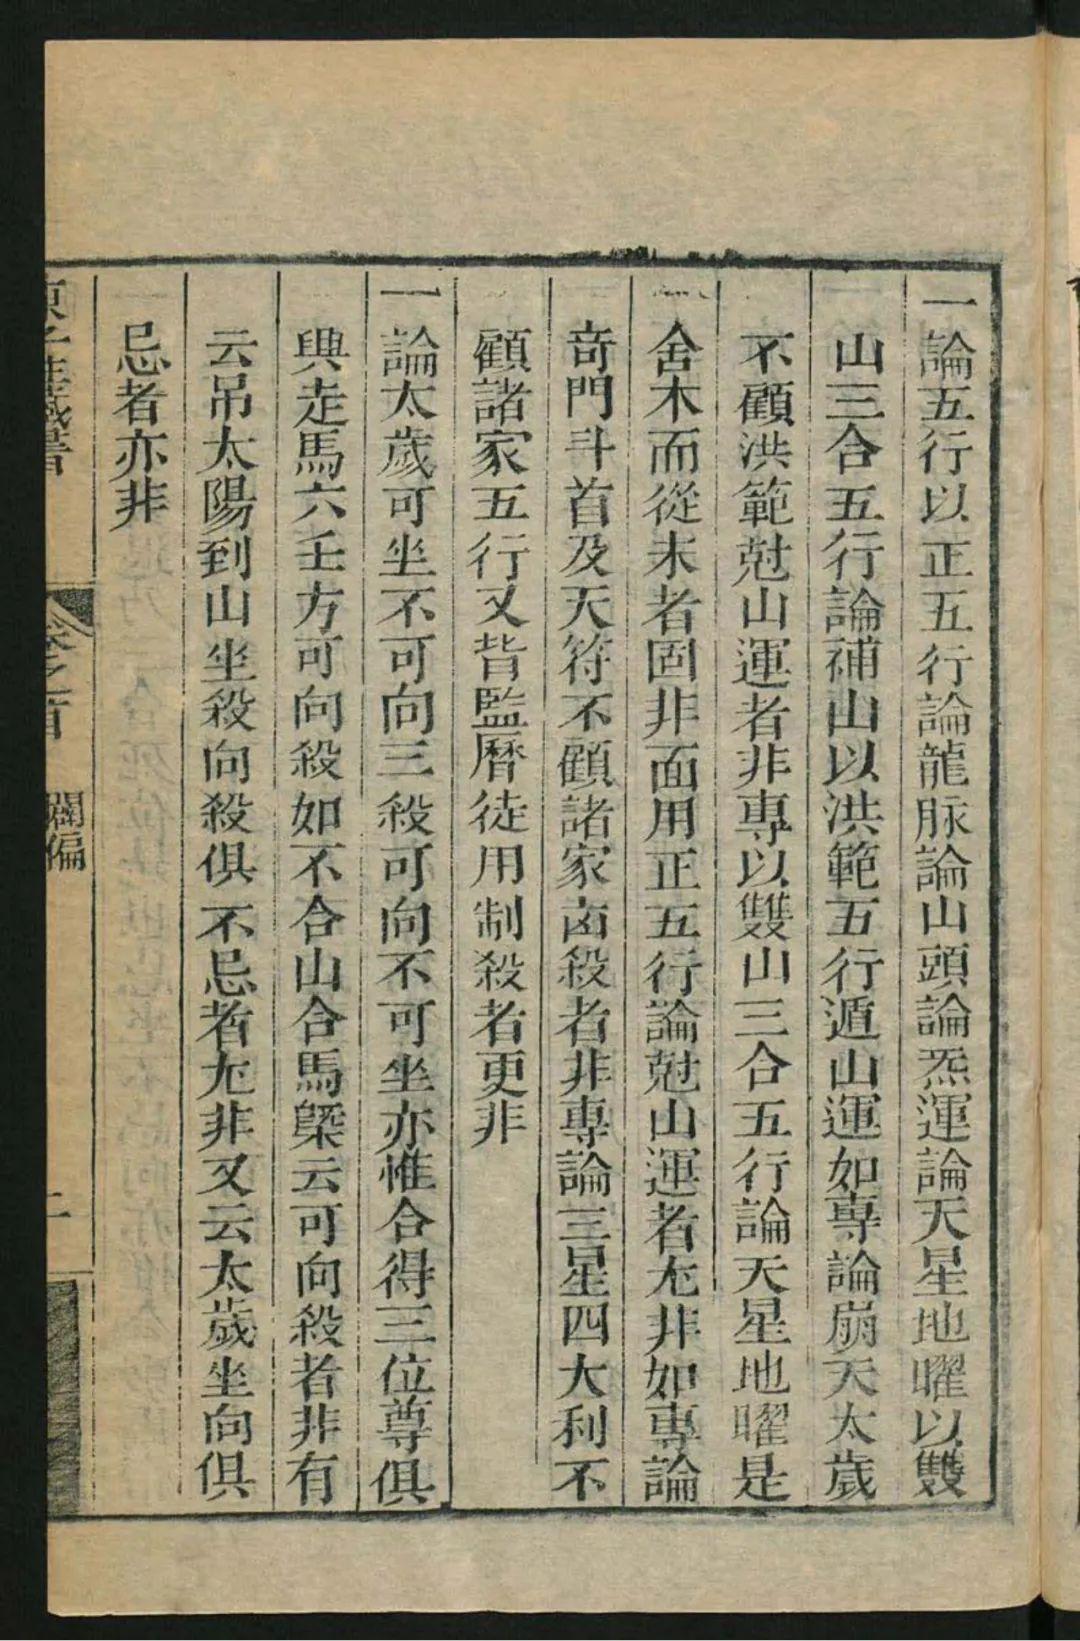 一論五行以正五行論龍脉論山頭論炁運論天星地曜以雙
山三合五行論補山以洪範五行遁山運如專論崩天太歲
不顧洪範尅山運者非專以雙山三合五行論天星地曜是
舍本而從末者固非面用正五行論尅山運者尤非如專論
奇門斗首及天符不顧諸家凶殺者非專論三星四大利不
顧諸家五行又皆監曆徒用制殺者更非
一論太歲可坐不可向三殺可向不可坐亦惟合得三位尊俱
與走馬六壬方可向殺如不合山合馬槩云可向殺者非有
云吊太陽到山坐殺向殺俱不忌者尤非又云太歲坐向俱
忌者亦非
卷之首
闢偏